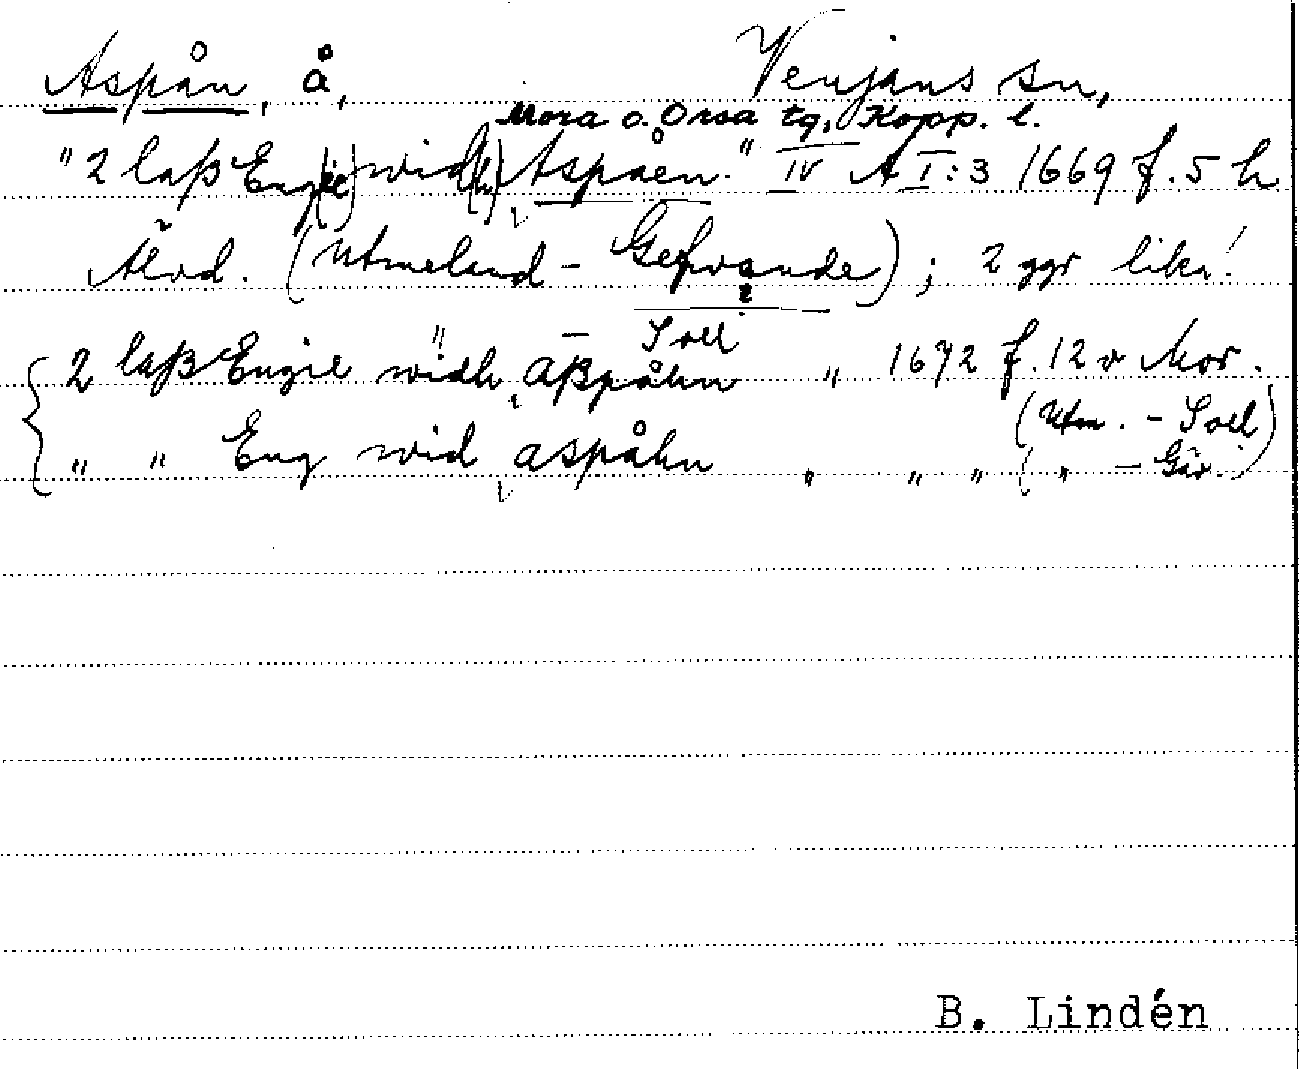 Aspån, å, Venjans sn,
Mora o. Orsa tg, Kopp. l.
"2 laß Eng(ie) wid(h) Aspåen." IV A I:3 1669 f. 5 h
Älvd. (Utmeland - Gefvunde); 2 ggr lika!
" - Soll
2 laß Engie widh aßpåhn " 1672 f. 12 v Mor.
(Utm. - Soll)
" " Eng wid aspåhn " " " ( " - Gäv.)
B. Lindén